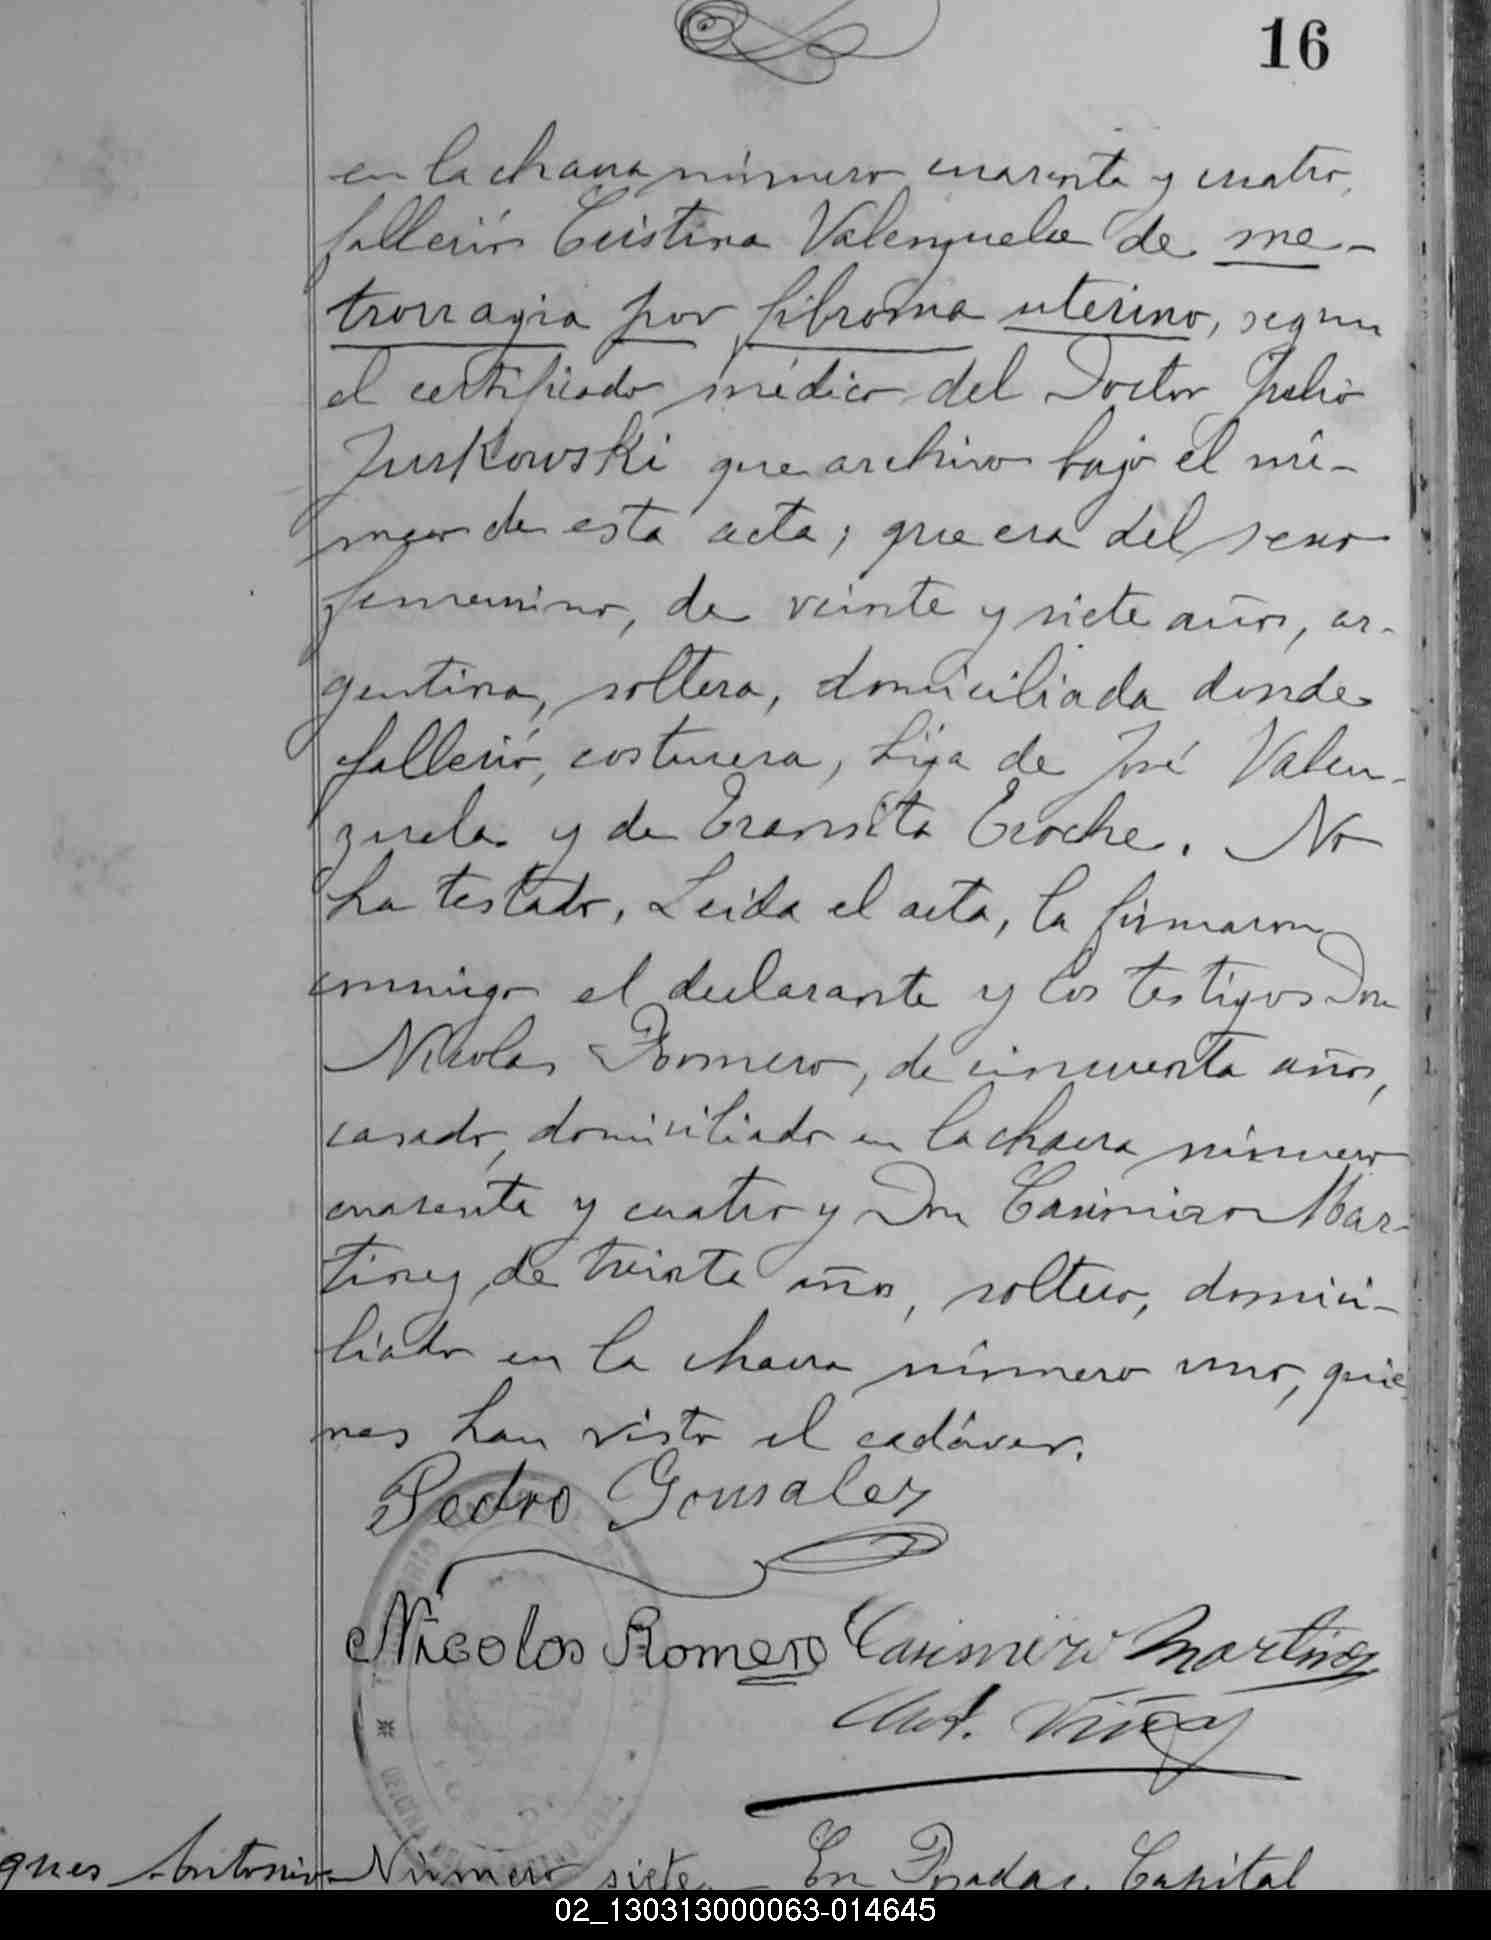 16
en la chacra número cuarenta y cuatro,
falleció Cristina Valenzuela de me-
trorragia por fibroma uterino, segun
el certificado médico del Doctor Julio
Jurkowski que archivo bajo el nú-
mero de esta acta; que era del sexo
femenino, de veinte y siete años, ar-
gentina, soltera, domiciliada donde
falleció, costurera, hija de José Valen-
zuela y de Transita Eroche. No
ha testado. Leida el acta, la firmaron
conmigo el declarante y los testigos Don
Nicolas Romero, de cincuenta años,
casado, domiciliado en la chacra número
cuarenta y cuatro y Don Casimiro Mar-
tinez, de treinta años, soltero, domici-
liado en la chacra número uno, quie
nes han visto el cadáver.
Pedro Gonsalez
Nicolos Romero Casimiro Martinez
gues Antonio Número siete. - En Posadas, Capital
02_130313000063-014645